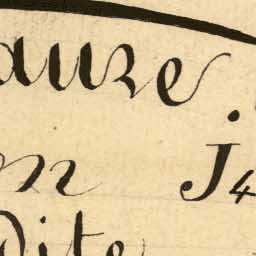 auze.
on J4
dite